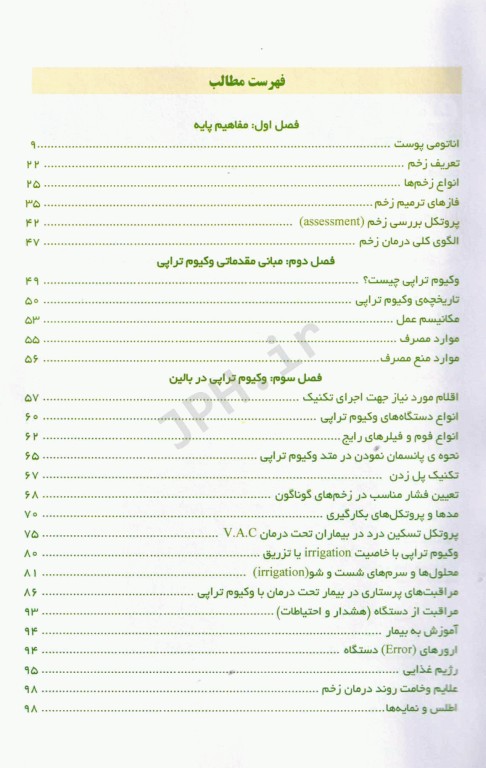 فهرست مطالب
فصل اول: مفاهیم پایه
اناتومی پوست ........ ۹
تعریف زخم ........ ۲۲
انواع زخم‌ها ........ ۲۵
فازهای ترمیم زخم ........ ۳۵
پروتکل بررسی زخم (assessment) ........ ۴۲
الگوی کلی درمان زخم ........ ۴۷
فصل دوم: مبانی مقدماتی وکیوم تراپی
وکیوم تراپی چیست؟ ........ ۴۹
تاریخچه‌ی وکیوم تراپی ........ ۵۰
مکانیسم عمل ........ ۵۳
موارد مصرف ........ ۵۵
موارد منع مصرف ........ ۵۶
فصل سوم: وکیوم تراپی در بالین
اقلام مورد نیاز جهت اجرای تکنیک ........ ۵۷
انواع دستگاه‌های وکیوم تراپی ........ ۶۰
انواع فوم و فیلرهای رایج ........ ۶۲
نحوه ی پانسمان نمودن در متد وکیوم تراپی ........ ۶۵
تکنیک پل زدن ........ ۶۷
تعیین فشار مناسب در زخم‌های گوناگون ........ ۶۸
مدها و پروتکل‌های بکارگیری ........ ۷۰
پروتکل تسکین درد در بیماران تحت درمان V.A.C ........ ۷۵
وکیوم تراپی با خاصیت irrigation یا تزریق ........ ۸۰
محلول‌ها و سرم‌های شست و شو(irrigation) ........ ۸۱
مراقبت‌های پرستاری در بیمار تحت درمان با وکیوم تراپی ........ ۸۶
مراقبت از دستگاه (هشدار و احتیاطات) ........ ۹۳
آموزش به بیمار ........ ۹۴
ارورهای (Error) دستگاه ........ ۹۴
رژیم غذایی ........ ۹۵
علایم وخامت روند درمان زخم ........ ۹۸
اطلس و نمایه‌ها ........ ۹۸
JPH.ir